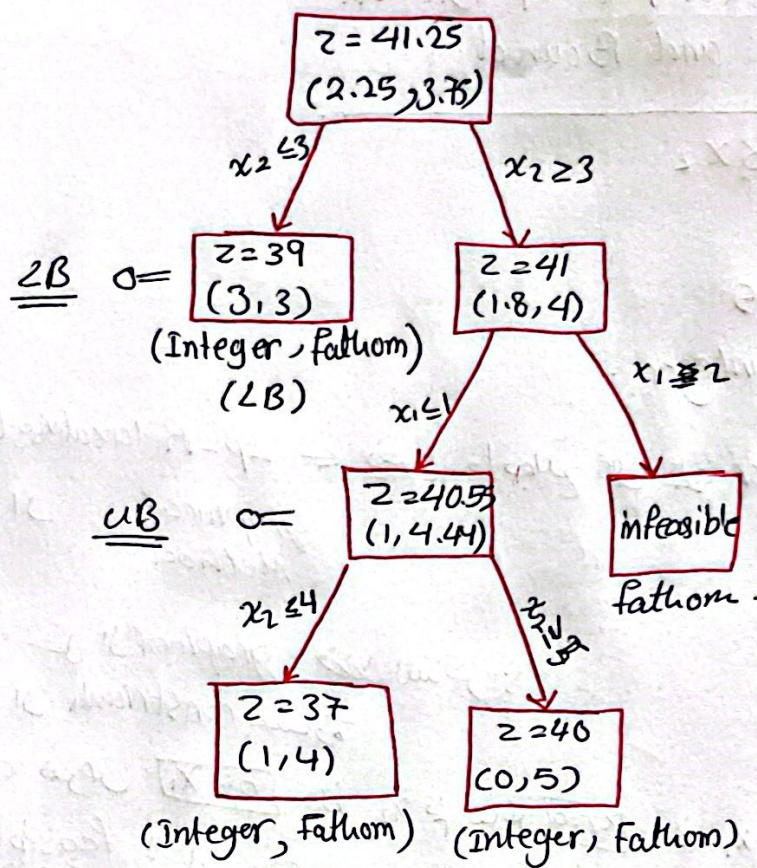 Z = 41.25
(2.25, 3.75)
x2 ≤3
x2 ≥3
LB
Z = 39
(3,3)
(Integer, fathom)
(LB)
Z = 41
(1.8, 4)
x1 ≤1
x1 ≥ 2
UB
Z = 40.55
(1, 4.44)
infeasible
fathom.
x2 ≤4
Z = 37
(1,4)
(Integer, Fathom)
Z = 40
(0,5)
(Integer, Fathom)